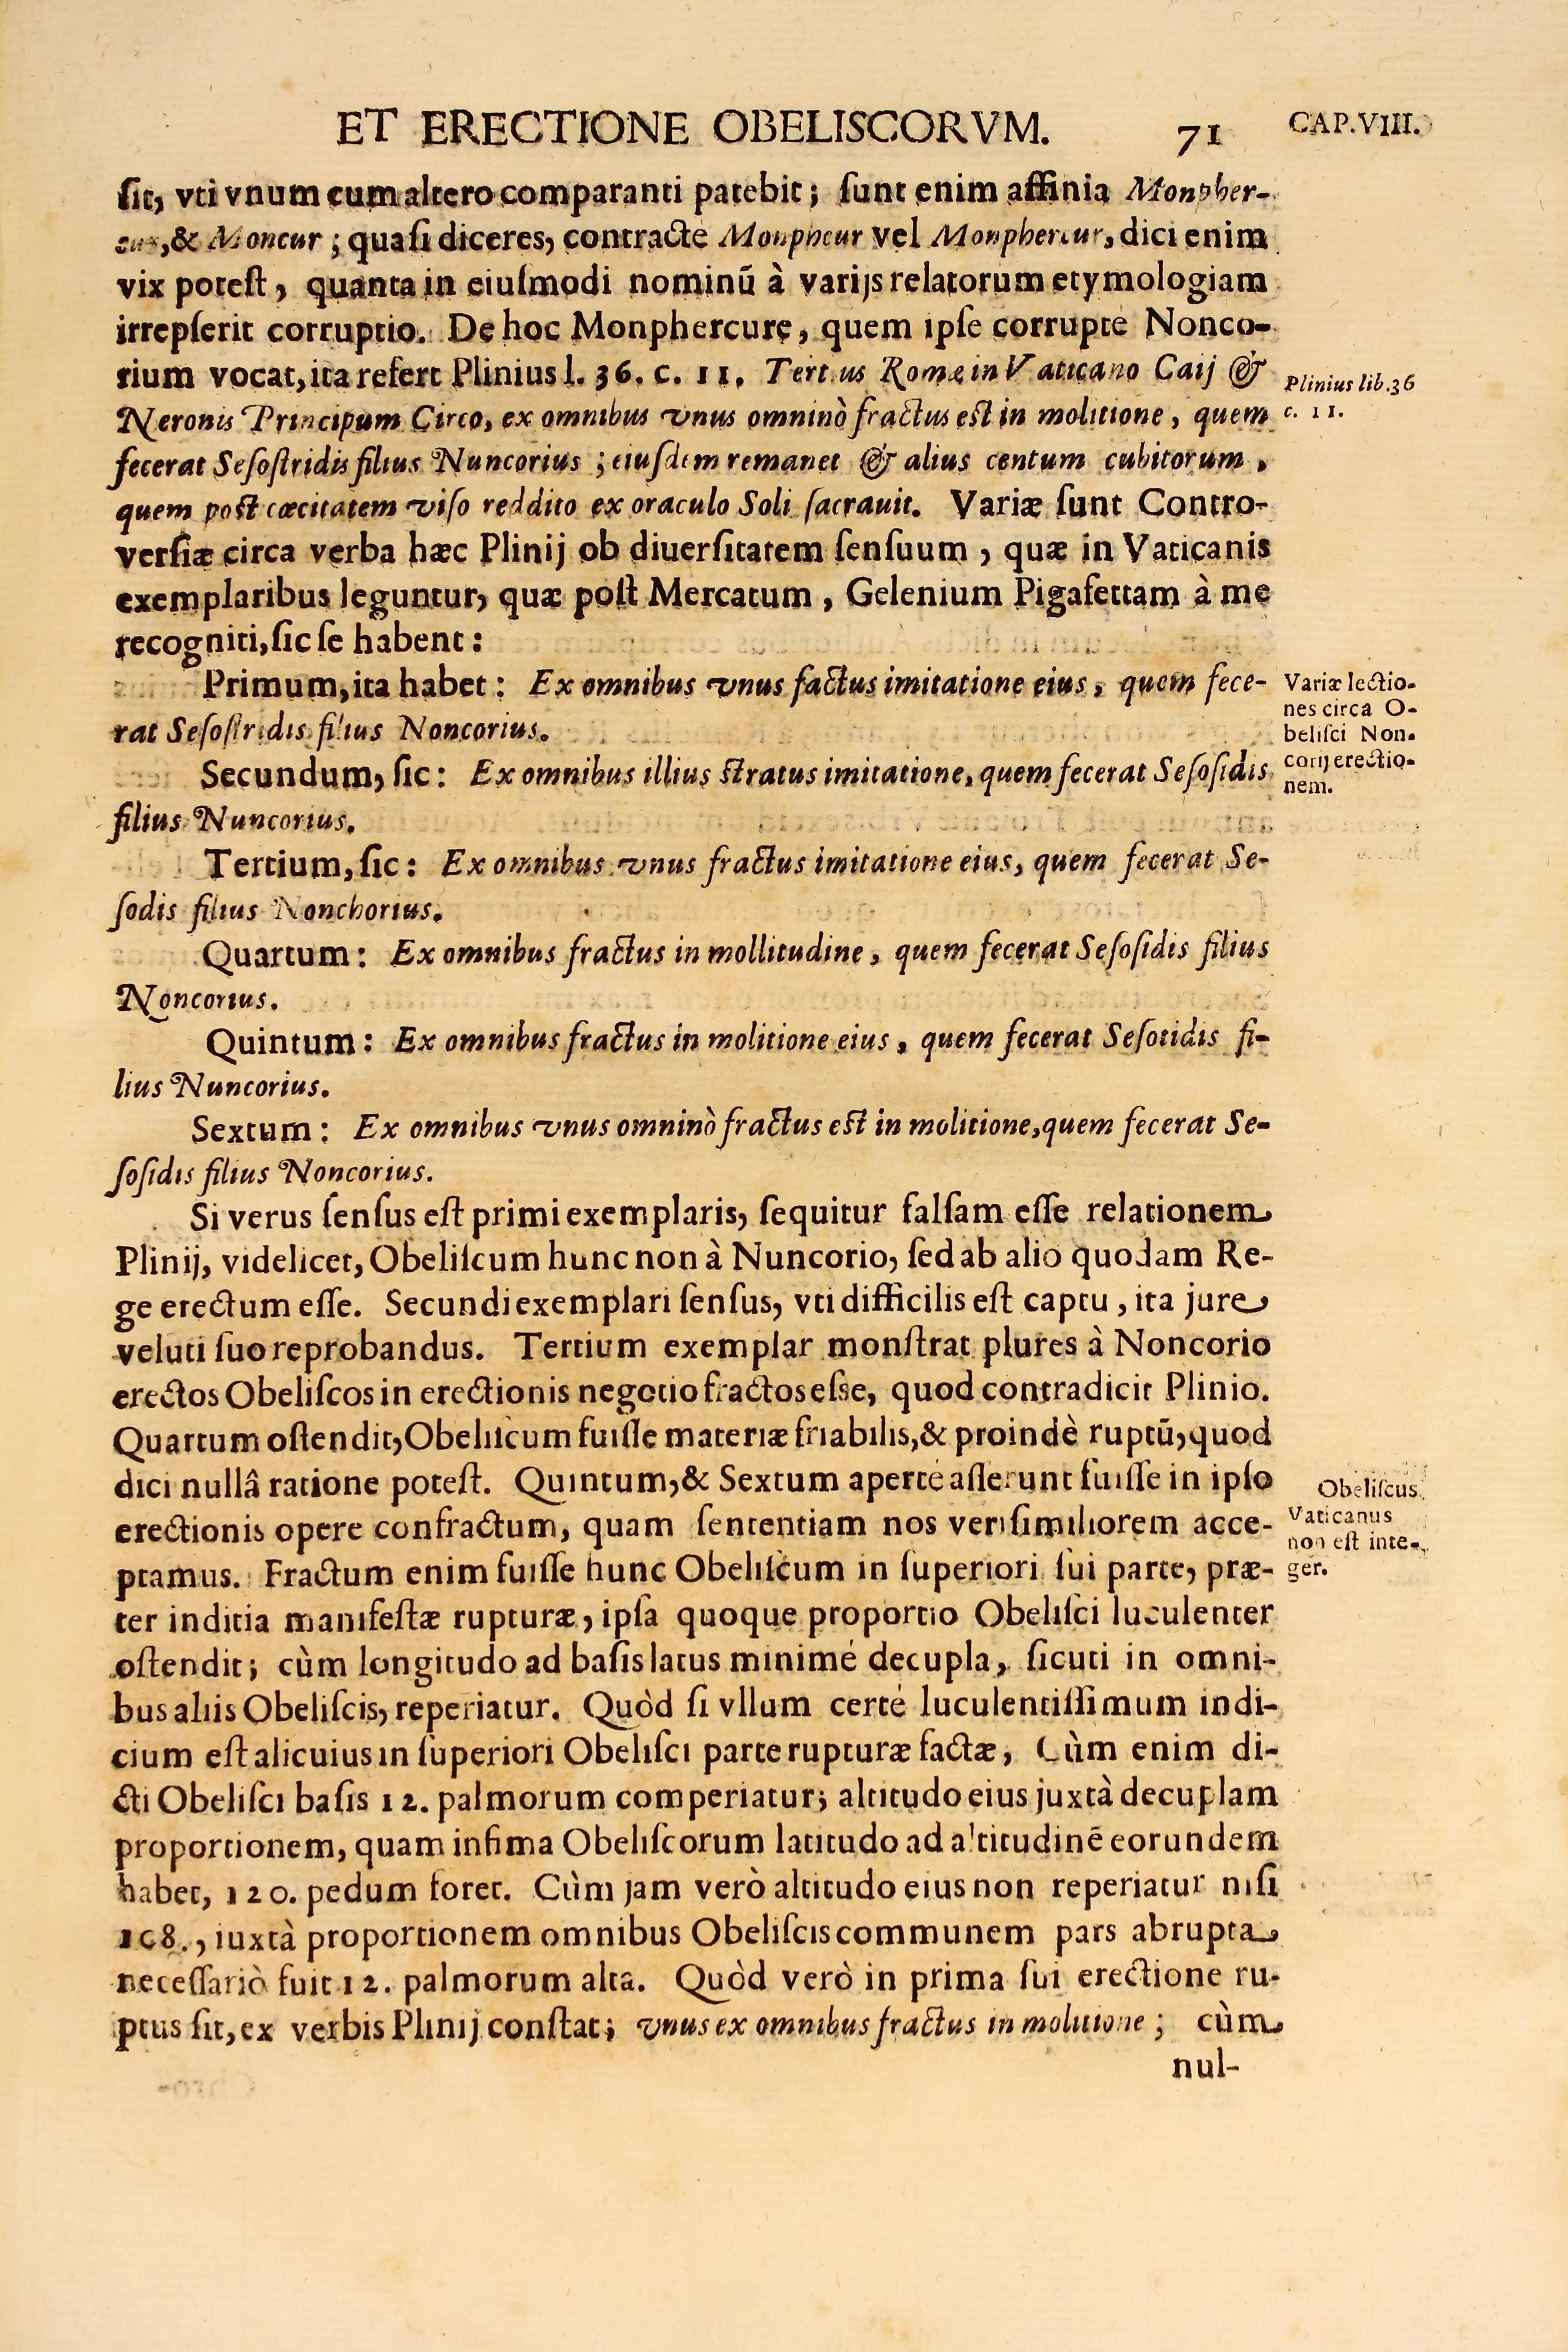 ET ERECTIONE OBELISCORVM. 71 CAP.VIII.
ſit, vti vnum cum altero comparanti patebit; ſunt enim affinia Monpher-
cur, & Moncur; quaſi diceres, contractè Monphcur vel Monphercur, dici enim
vix poteſt, quanta in eiuſmodi nominū à varijs relatorum etymologiam
irrepſerit corruptio. De hoc Monphercure, quem ipſe corruptè Nonco-
rium vocat, ita refert Plinius l. 36. c. 11. Tertius Romæ in Vaticano Caij &
Neronis Principum Circo, ex omnibus vnus omninò fractus eſt in molitione, quem
fecerat Seſoſtridis filius Nuncorius; eiuſdem remanet & alius centum cubitorum,
quem poſt cœcitatem viſo reddito ex oraculo Soli ſacrauit. Variæ ſunt Contro-
verſiæ circa verba hæc Plinij ob diuerſitatem ſenſuum, quæ in Vaticanis
exemplaribus leguntur, quæ poſt Mercatum, Gelenium Pigafettam à me
recogniti, ſic ſe habent:
Plinius lib.36
c. 11.
Primum, ita habet: Ex omnibus vnus factus imitatione eius, quem fece-
rat Seſoſtridis filius Noncorius.
Secundum, ſic: Ex omnibus illius ſtratus imitatione, quem fecerat Seſoſidis
filius Nuncorius.
Variæ lectio-
nes circa O-
beliſci Non-
corij erectio-
nem.
Tertium, ſic: Ex omnibus vnus fractus imitatione eius, quem fecerat Se-
ſodis filius Nonchorius.
Quartum: Ex omnibus fractus in mollitudine, quem fecerat Seſoſidis filius
Noncorius.
Quintum: Ex omnibus fractus in molitione eius, quem fecerat Seſotidis fi-
lius Nuncorius.
Sextum: Ex omnibus vnus omninò fractus eſt in molitione, quem fecerat Se-
ſoſidis filius Noncorius.
Si verus ſenſus eſt primi exemplaris, ſequitur falſam eſſe relationem
Plinij, videlicet, Obeliſcum hunc non à Nuncorio, ſed ab alio quodam Re-
ge erectum eſſe. Secundi exemplari ſenſus, vti difficilis eſt captu, ita jure
veluti ſuo reprobandus. Tertium exemplar monſtrat plures à Noncorio
erectos Obeliſcos in erectionis negotio fractos eſse, quod contradicit Plinio.
Quartum oſtendit, Obeliſcum fuiſſe materiæ friabilis, & proindè ruptū, quod
dici nullâ ratione poteſt. Quintum, & Sextum apertè aſſerunt fuiſſe in ipſo
erectionis opere confractum, quam ſententiam nos veriſimiliorem acce-
ptamus. Fractum enim fuiſſe hunc Obeliſcum in ſuperiori ſui parte, præ-
ter inditia manifeſtæ rupturæ, ipſa quoque proportio Obeliſci luculenter
oſtendit; cùm longitudo ad baſis latus minimé decupla, ſicuti in omni-
bus aliis Obeliſcis, reperiatur. Quòd ſi vllum certé luculentiſſimum indi-
cium eſt alicuius in ſuperiori Obeliſci parte rupturæ factæ, Cùm enim di-
cti Obeliſci baſis 12. palmorum comperiatur; altitudo eius juxtà decuplam
proportionem, quam infima Obeliſcorum latitudo ad altitudinē eorundem
habet, 120. pedum foret. Cùm jam verò altitudo eius non reperiatur niſi
108., iuxtà proportionem omnibus Obeliſcis communem pars abrupta
neceſſariò fuit 12. palmorum alta. Quòd verò in prima ſui erectione ru-
ptus ſit, ex verbis Plinij conſtat; vnus ex omnibus fractus in molitione; cùm
Obeliſcus
Vaticanus
non eſt inte-
ger.
nul-